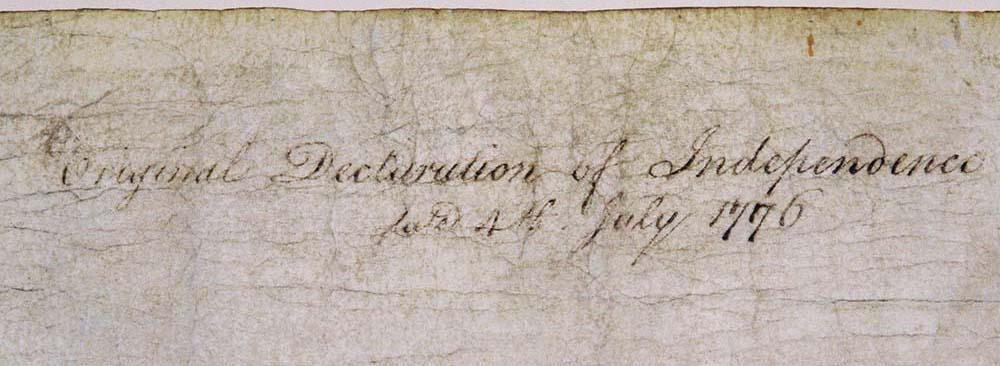 Original Declaration of Independence
dated 4th July 1776